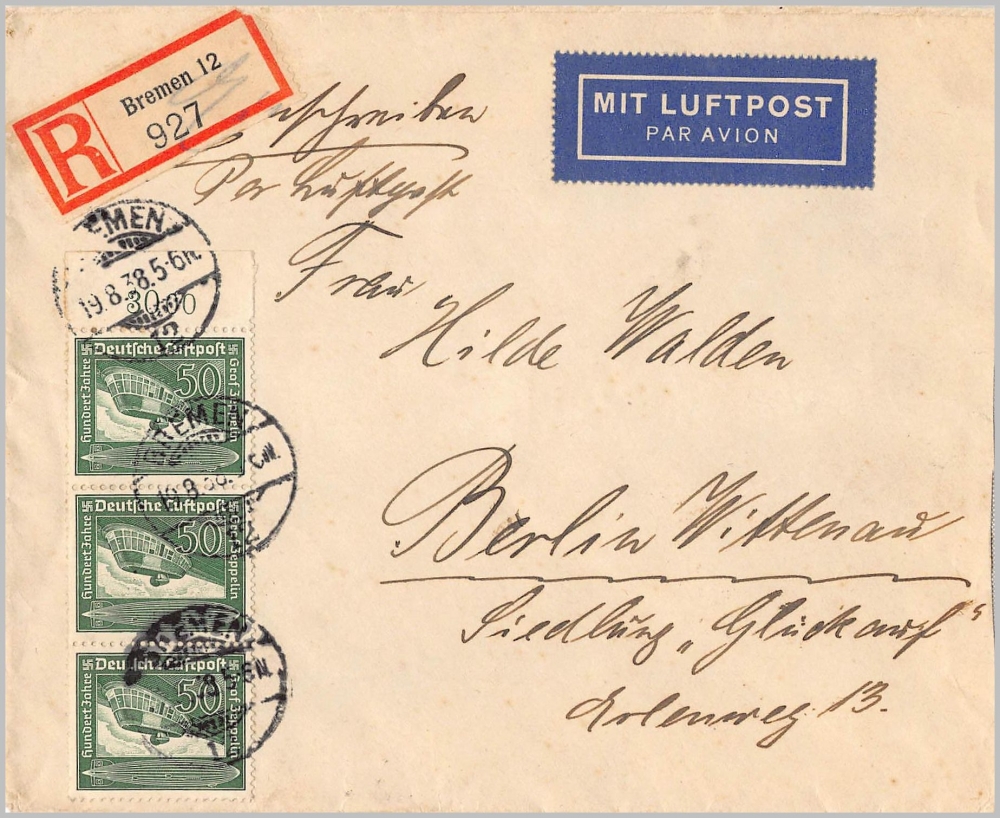 Bremen 12
927
R
Einschreiben
Per Luftpost
MIT LUFTPOST
PAR AVION
Frau
Hilde Walden
Berlin Wittenau
Siedlung „Glückauf“
Erlenweg 13.
BREMEN
19.8.38.5-6N
12
30,00
Deutsche Luftpost
Hundert Jahre
50
Graf Zeppelin
BREMEN
19.8.38.
Deutsche Luftpost
Hundert Jahre
50
Graf Zeppelin
BREMEN
Deutsche Luftpost
Hundert Jahre
50
Graf Zeppelin